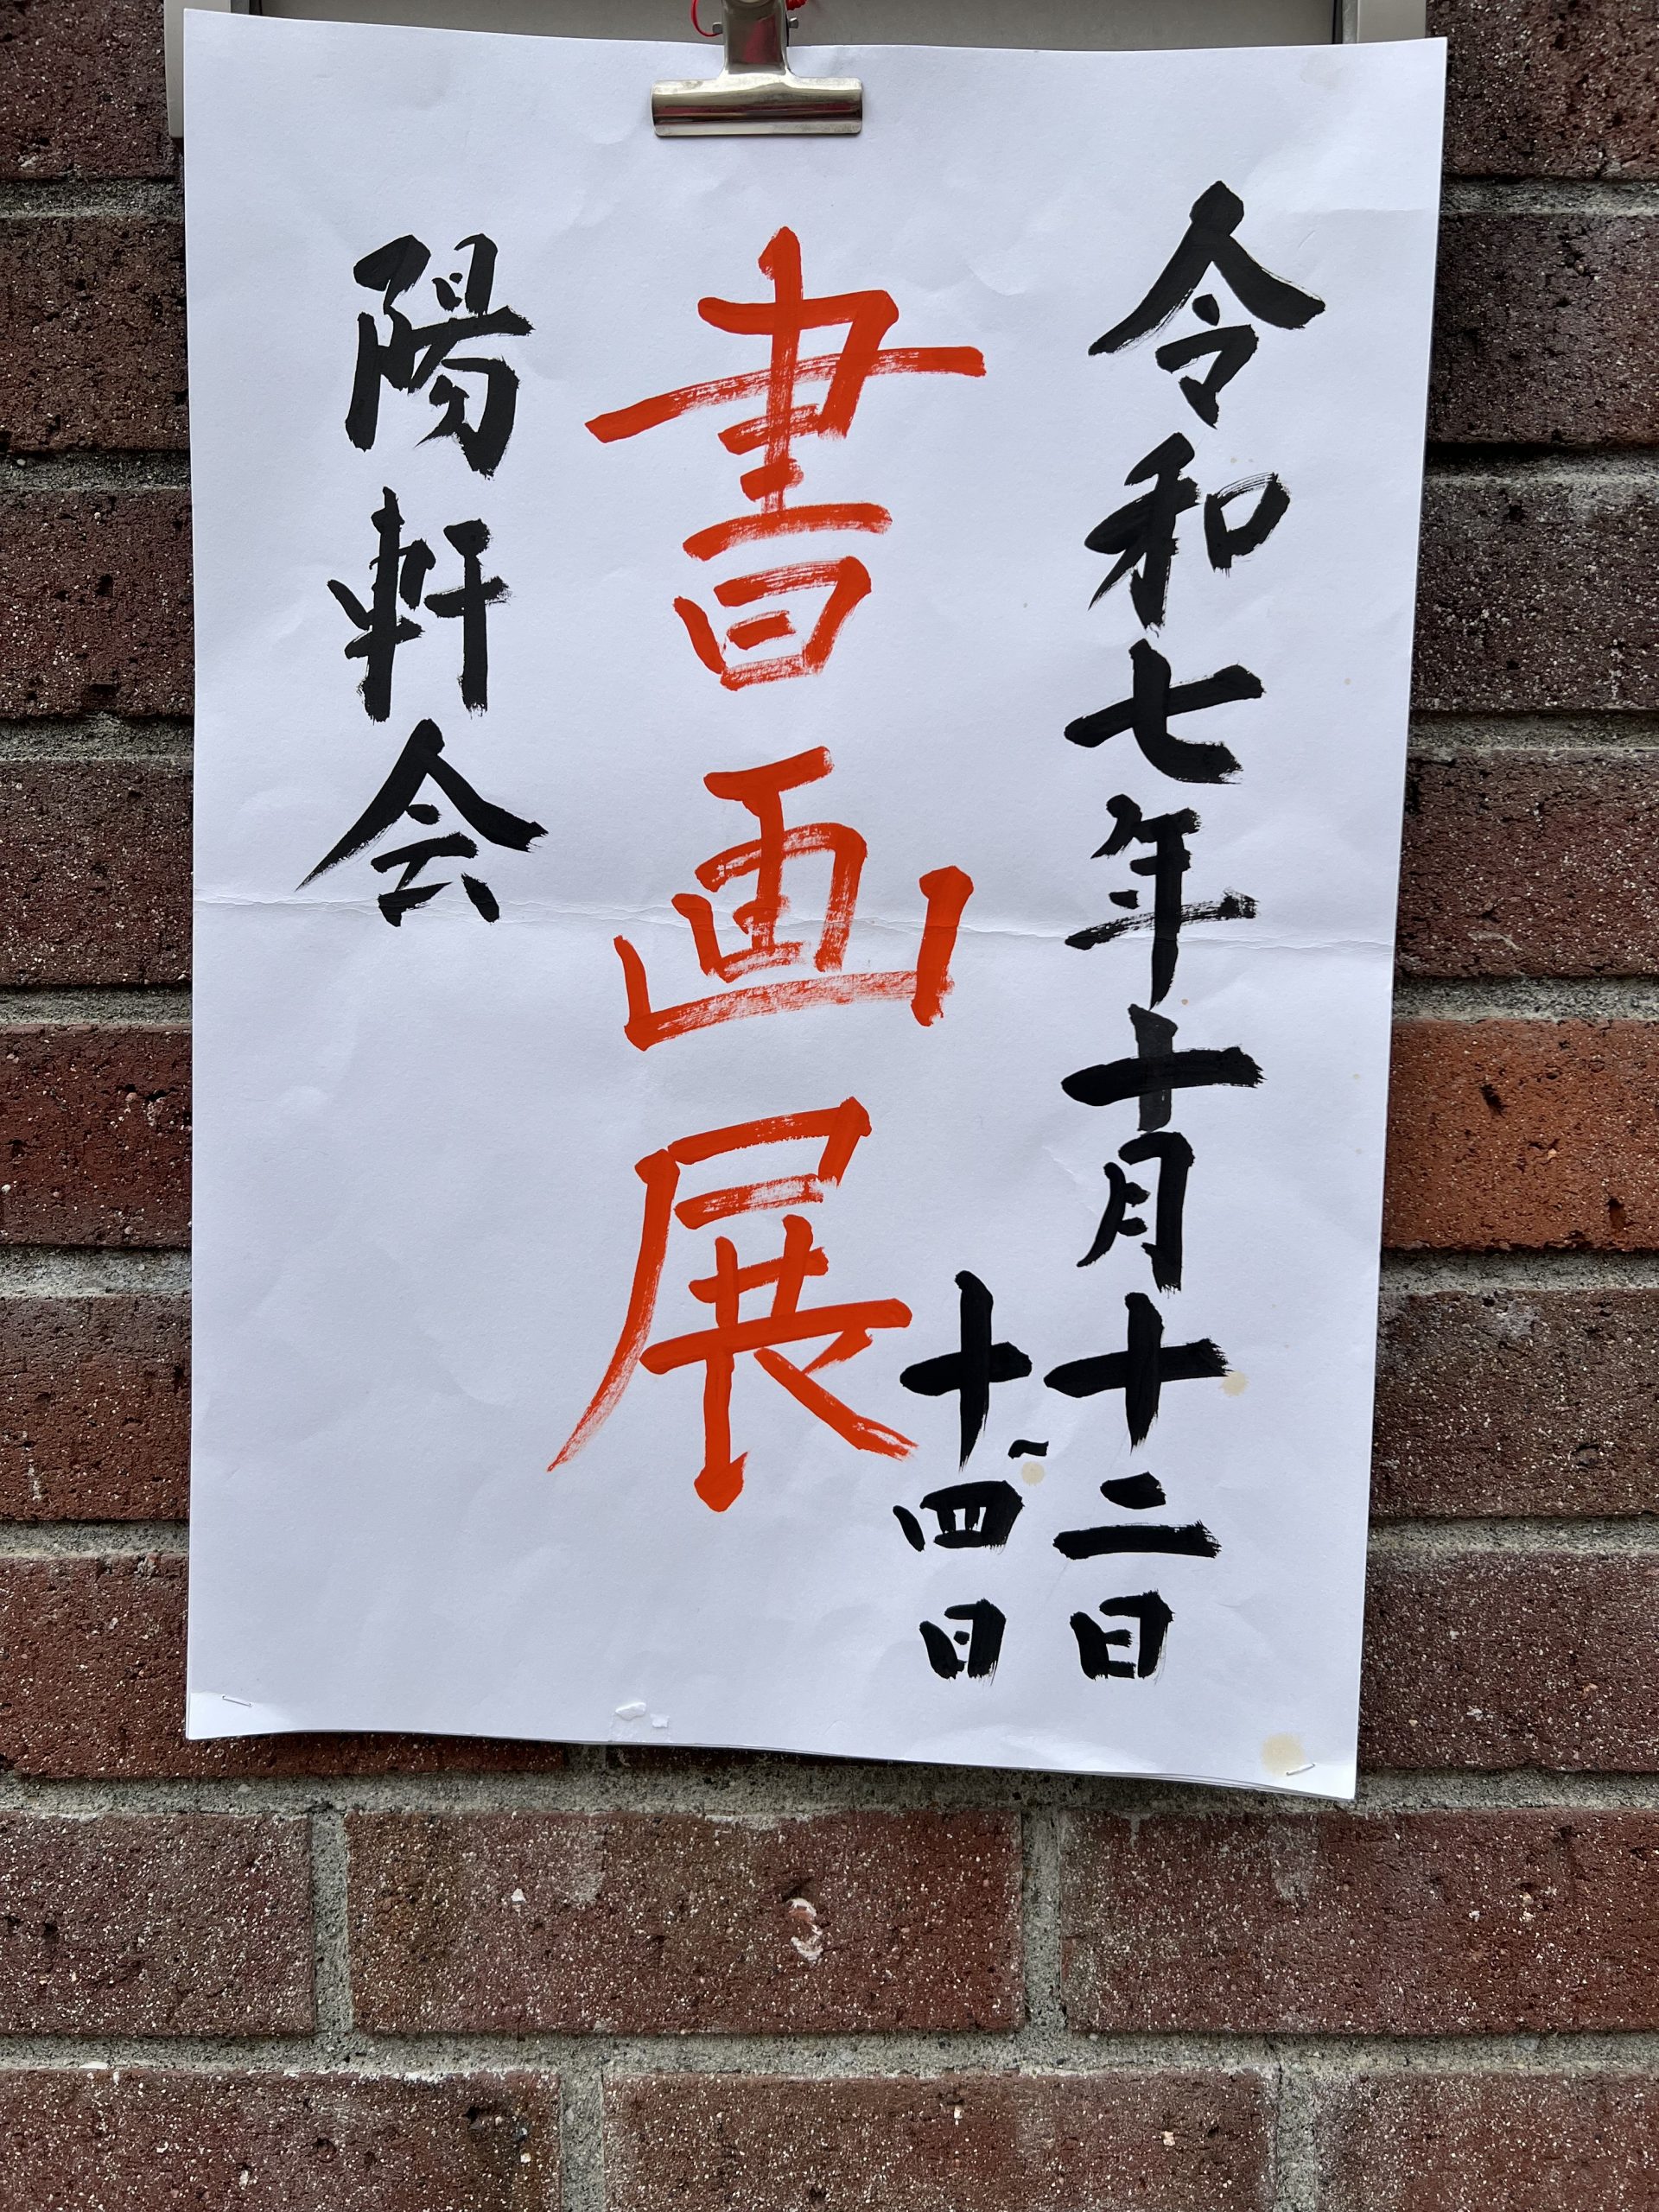 令和七年十月十二日
〜十四日
書画展
陽軒会